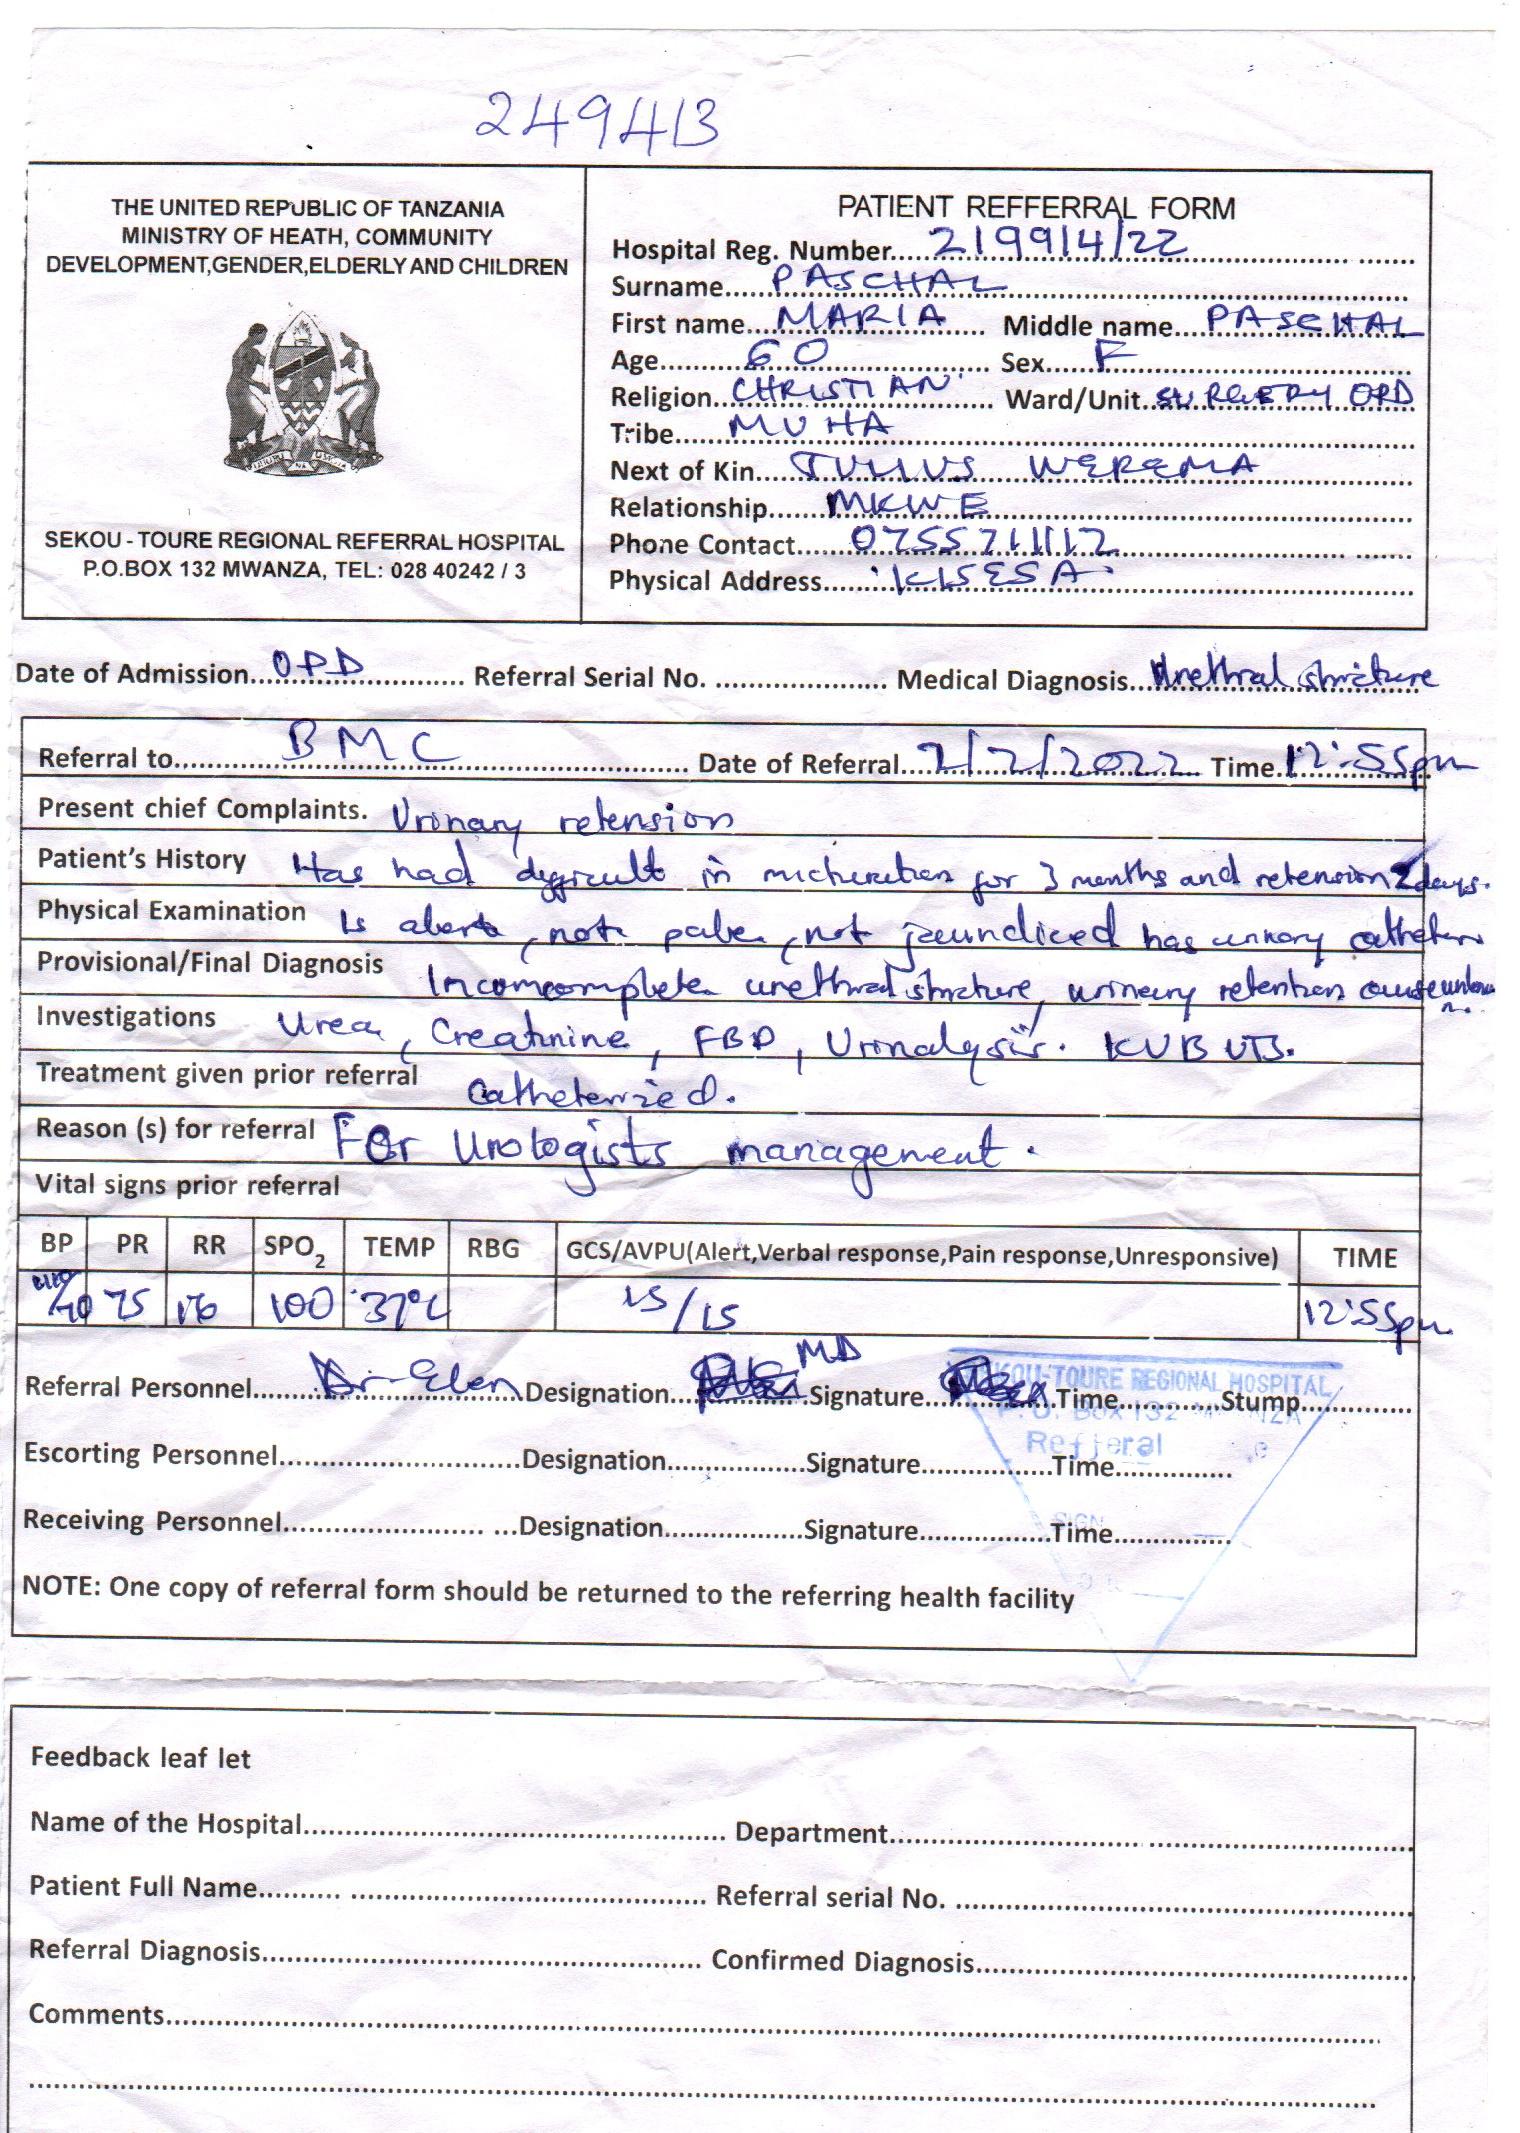 249413
THE UNITED REPUBLIC OF TANZANIA
MINISTRY OF HEATH, COMMUNITY
DEVELOPMENT,GENDER,ELDERLY AND CHILDREN
SEKOU - TOURE REGIONAL REFERRAL HOSPITAL
P.O.BOX 132 MWANZA, TEL: 028 40242 / 3
PATIENT REFFERRAL FORM
Hospital Reg. Number..... 219914/22
Surname..... PASCHAL
First name.... MARIA Middle name.... PASCHAL
Age......... 60 Sex..... F
Religion.. CHRISTIAN Ward/Unit.. SURGERY OPD
Tribe..... MUHA
Next of Kin.... WEREMA
Relationship...... MKWE
Phone Contact...... 0755711112
Physical Address...... KISESA
Date of Admission... OPD Referral Serial No. .................... Medical Diagnosis... Urethral stricture
Referral to.... BMC Date of Referral.... 2/2/2022 Time. 12:55pm
Present chief Complaints. Urinary retension
Patient's History Has had difficult in micturition for 3 months and retension 2 days.
Physical Examination Is alert, not pale, not jaundiced has urinary catheter
Provisional/Final Diagnosis urethral stricture, urinary retention cause
Investigations Urea, Creatinine, FBP, Urinalysis. KUB UTS.
Treatment given prior referral Catheterized.
Reason (s) for referral For Urologists management.
Vital signs prior referral
BP PR RR SPO2 TEMP RBG GCS/AVPU(Alert,Verbal response,Pain response,Unresponsive) TIME
/70 75 16 100 37°C 15/15 12:55pm
Referral Personnel...... Dr-Elen Designation... MD Signature.... Time............Stump.............
SEKOU-TOURE REGIONAL HOSPITAL
P.O. Box 132 MWANZA
Referral
SIGN
Escorting Personnel..............................Designation.................Signature................Time...............
Receiving Personnel......................... ...Designation.................Signature................Time...............
NOTE: One copy of referral form should be returned to the referring health facility
Feedback leaf let
Name of the Hospital..................................................... Department................................................................
Patient Full Name.......... ............................................ Referral serial No. .........................................................
Referral Diagnosis...................................................... Confirmed Diagnosis......................................................
Comments........................................................................................................................................................